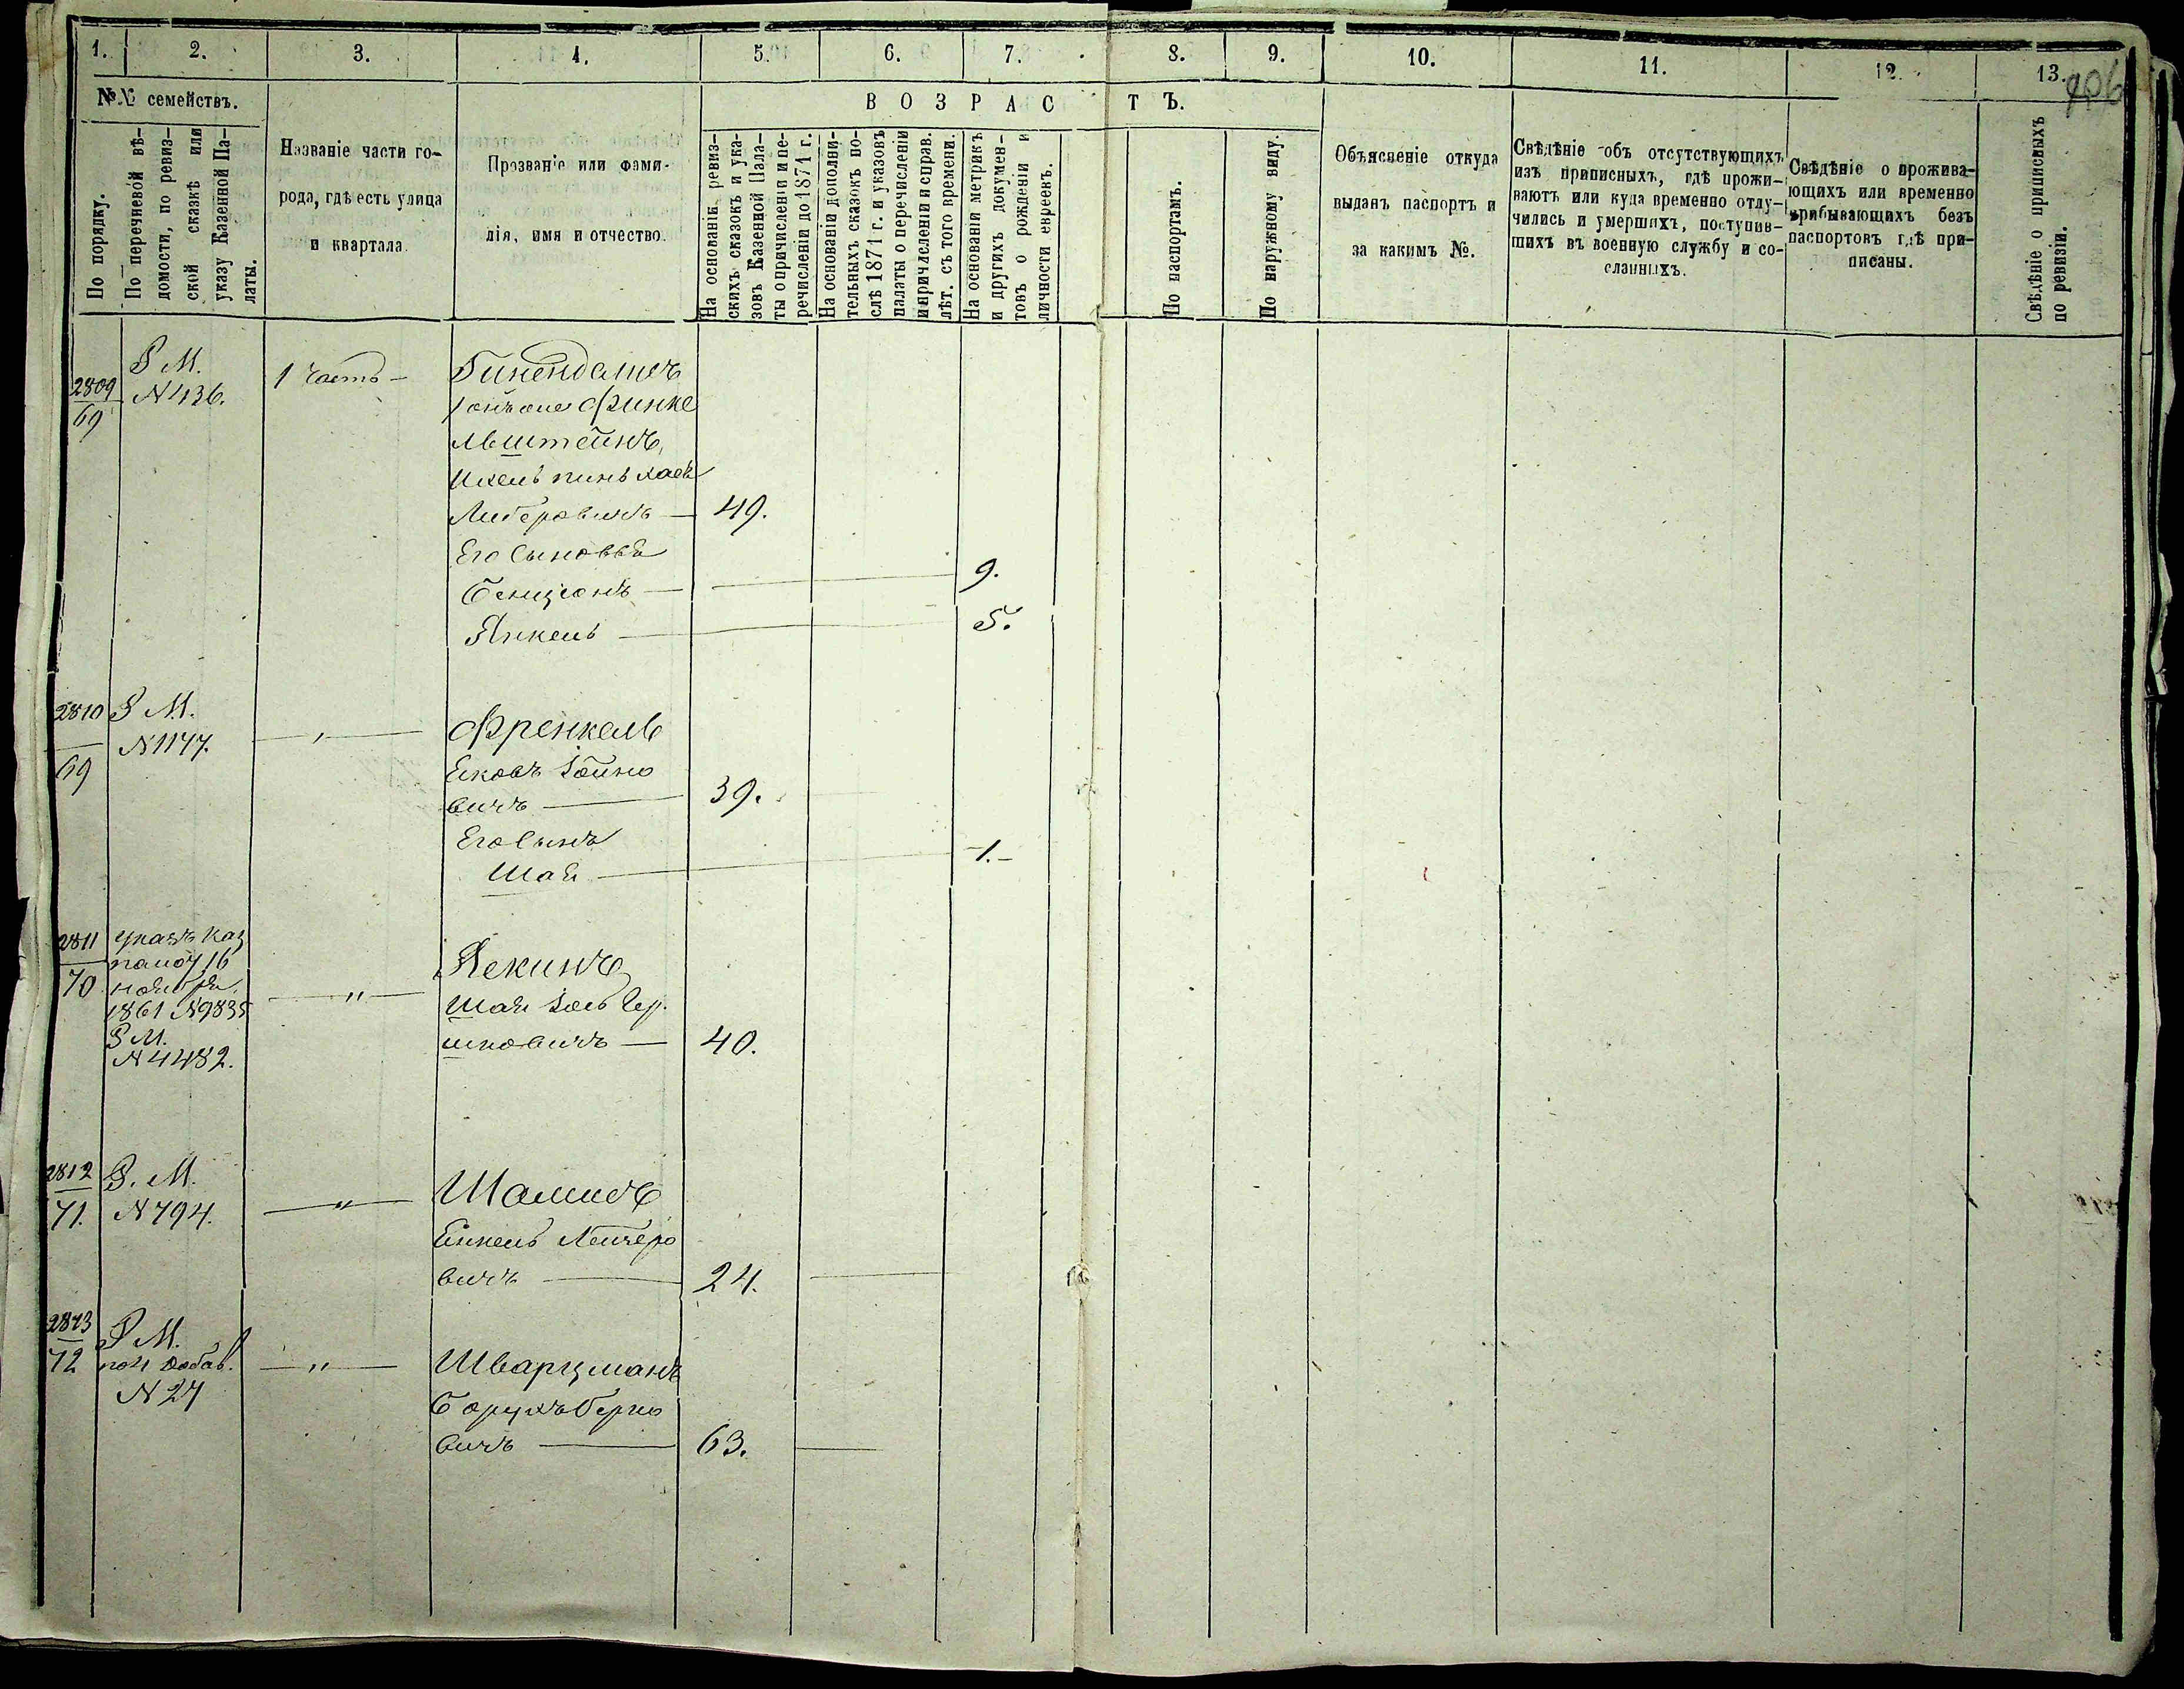 1.
2.
3.
4.
5.
6.
7.
8.
9.
10.
11.
12.
13.
406
№№ семействъ.
По порядку.
По перечневой вѣ-
домости, по ревиз-
ской сказкѣ или
указу Казенной Па-
латы.
Названіе части го-
рода, гдѣ есть улица
и квартала.
Прозваніе или фами-
лія, имя и отчество.
ВОЗРАСТЪ.
На основаніи ревиз-
скихъ сказокъ и ука-
зовъ Казенной Пала-
ты о причисленіи и пе-
речисленіи до 1871 г.
На основаніи дополни-
тельныхъ сказокъ по-
слѣ 1871 г. и указовъ
палаты о перечисленіи
и причисленіи и справ.
лѣт. съ того времени.
На основаніи метрикъ
и другихъ докумен-
товъ о рожденіи и
личности евреевъ.
По паспортамъ.
По наружному виду.
Объясненіе откуда
выданъ паспортъ и
за какимъ №.
Свѣдѣніе объ отсутствующихъ
изъ приписныхъ, гдѣ прожи-
ваютъ или куда временно отлу-
чились и умершихъ, поступив-
шихъ въ военную службу и со-
сланныхъ.
Свѣдѣніе о прожива-
ющихъ или временно
прибывающихъ безъ
паспортовъ гдѣ при-
писаны.
Свѣдѣніе о приписныхъ
по ревизіи.
2809
69
Р М.
N 436.
1 часть —
онъ же Финке
льштейнъ,
Пинхасъ
Лейбовичъ — 49.
Его Сыновья
Бенціонъ — 9.
Янкель — 5.
2810
69
Р М.
N 1177.
Френкель
Янковъ Хаимо
вичъ — 39.
Его Сынъ
Шая — 1.—
2811
70
Указъ Каз
палаты 16
ноября
1861 N 9835
Р М.
N 4482.
— " —
Шая Гер
шковичъ — 40.
2812
71.
Р. М.
N 794.
— " —
Янкель Лейзеро
вичъ — 24.
2813
72
Р М.
по добав.
N 27
— " —
Шварцманъ
Борухъ Берко
вичъ — 63.